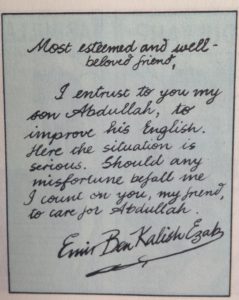 Most esteemed and well-
beloved friend,
I entrust to you my
son Abdullah, to
improve his English.
Here the situation is
serious. Should any
misfortune befall me
I count on you, my friend,
to care for Abdullah.
Emir Ben Kalish Ezab